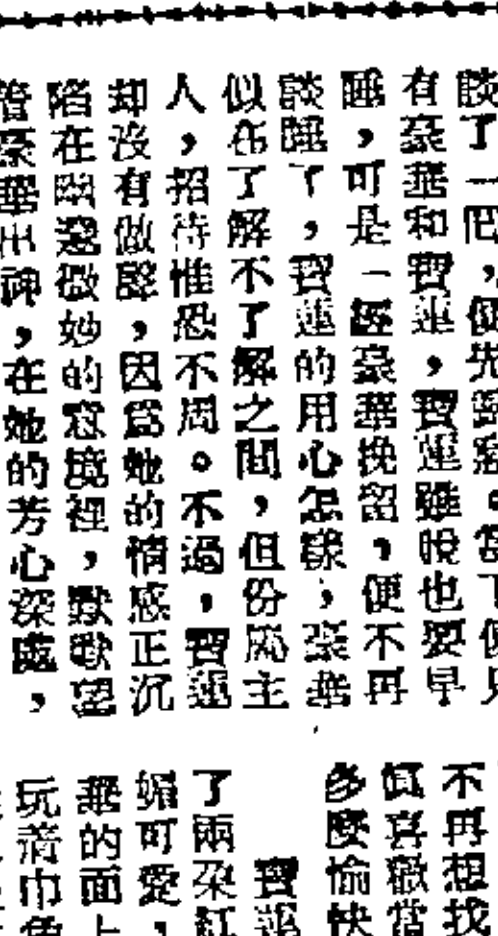 談了一吧，便先歸寢。當下便只
有豪華和寶蓮，寶蓮雖說也要早
睡，可是一經豪華挽留，便不再
談睡了，寶蓮的用心怎樣，豪華
似在了解不了解之間，但份屬主
人，招待惟恐不周。不過，寶蓮
却沒有做聲，因爲她的情感正沉
陷在幽邃微妙的意境裡，默默望
着豪華出神，在她的芳心深處，
不再想找
喜歡當
多麼愉快
寶蓮
了兩朶紅
媚可愛，
華的面上
玩着巾角